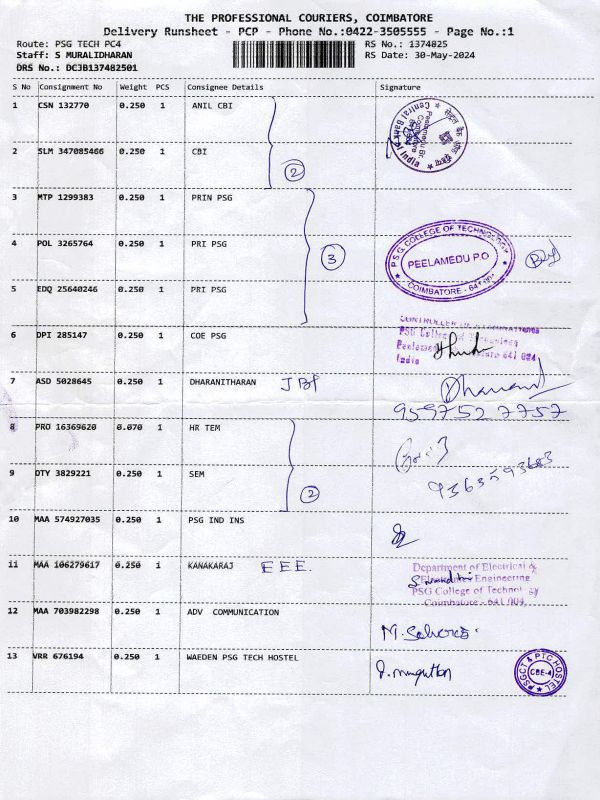 THE PROFESSIONAL COURIERS, COIMBATORE
Delivery Runsheet - PCP - Phone No.:0422-3505555 - Page No.:1
Route: PSG TECH PC4
RS No.: 1374825
Staff: S MURALIDHARAN
RS Date: 30-May-2024
DRS No.: DCJB137482501
S No Consignment No Weight PCS Consignee Details Signature
1 CSN 132770 0.250 1 ANIL CBI
Central Bank of India
Peelamedu Br.
Coimbatore
2 SLM 347085466 0.250 1 CBI
2
3 MTP 1299383 0.250 1 PRIN PSG
4 POL 3265764 0.250 1 PRI PSG
3
P.S.G. COLLEGE OF TECHNOLOGY
PEELAMEDU P.O
COIMBATORE - 641 004
5 EDQ 25640246 0.250 1 PRI PSG
6 DPI 285147 0.250 1 COE PSG
CONTROLLER OF EXAMINATIONS
PSG College of Technology
641 004
India
7 ASD 5028645 0.250 1 DHARANITHARAN
9597527757
8 PRO 16369620 0.070 1 HR TEM
9 DTY 3829221 0.250 1 SEM
2
9363593683
10 MAA 574927035 0.250 1 PSG IND INS
11 MAA 106279617 0.250 1 KANAKARAJ EEE.
Department of Electrical &
Electronics Engineering
PSG College of Technology
Coimbatore - 641 004
12 MAA 703982298 0.250 1 ADV COMMUNICATION
13 VRR 676194 0.250 1 WAEDEN PSG TECH HOSTEL
PSGCT & PTC HOSTEL
CBE-4